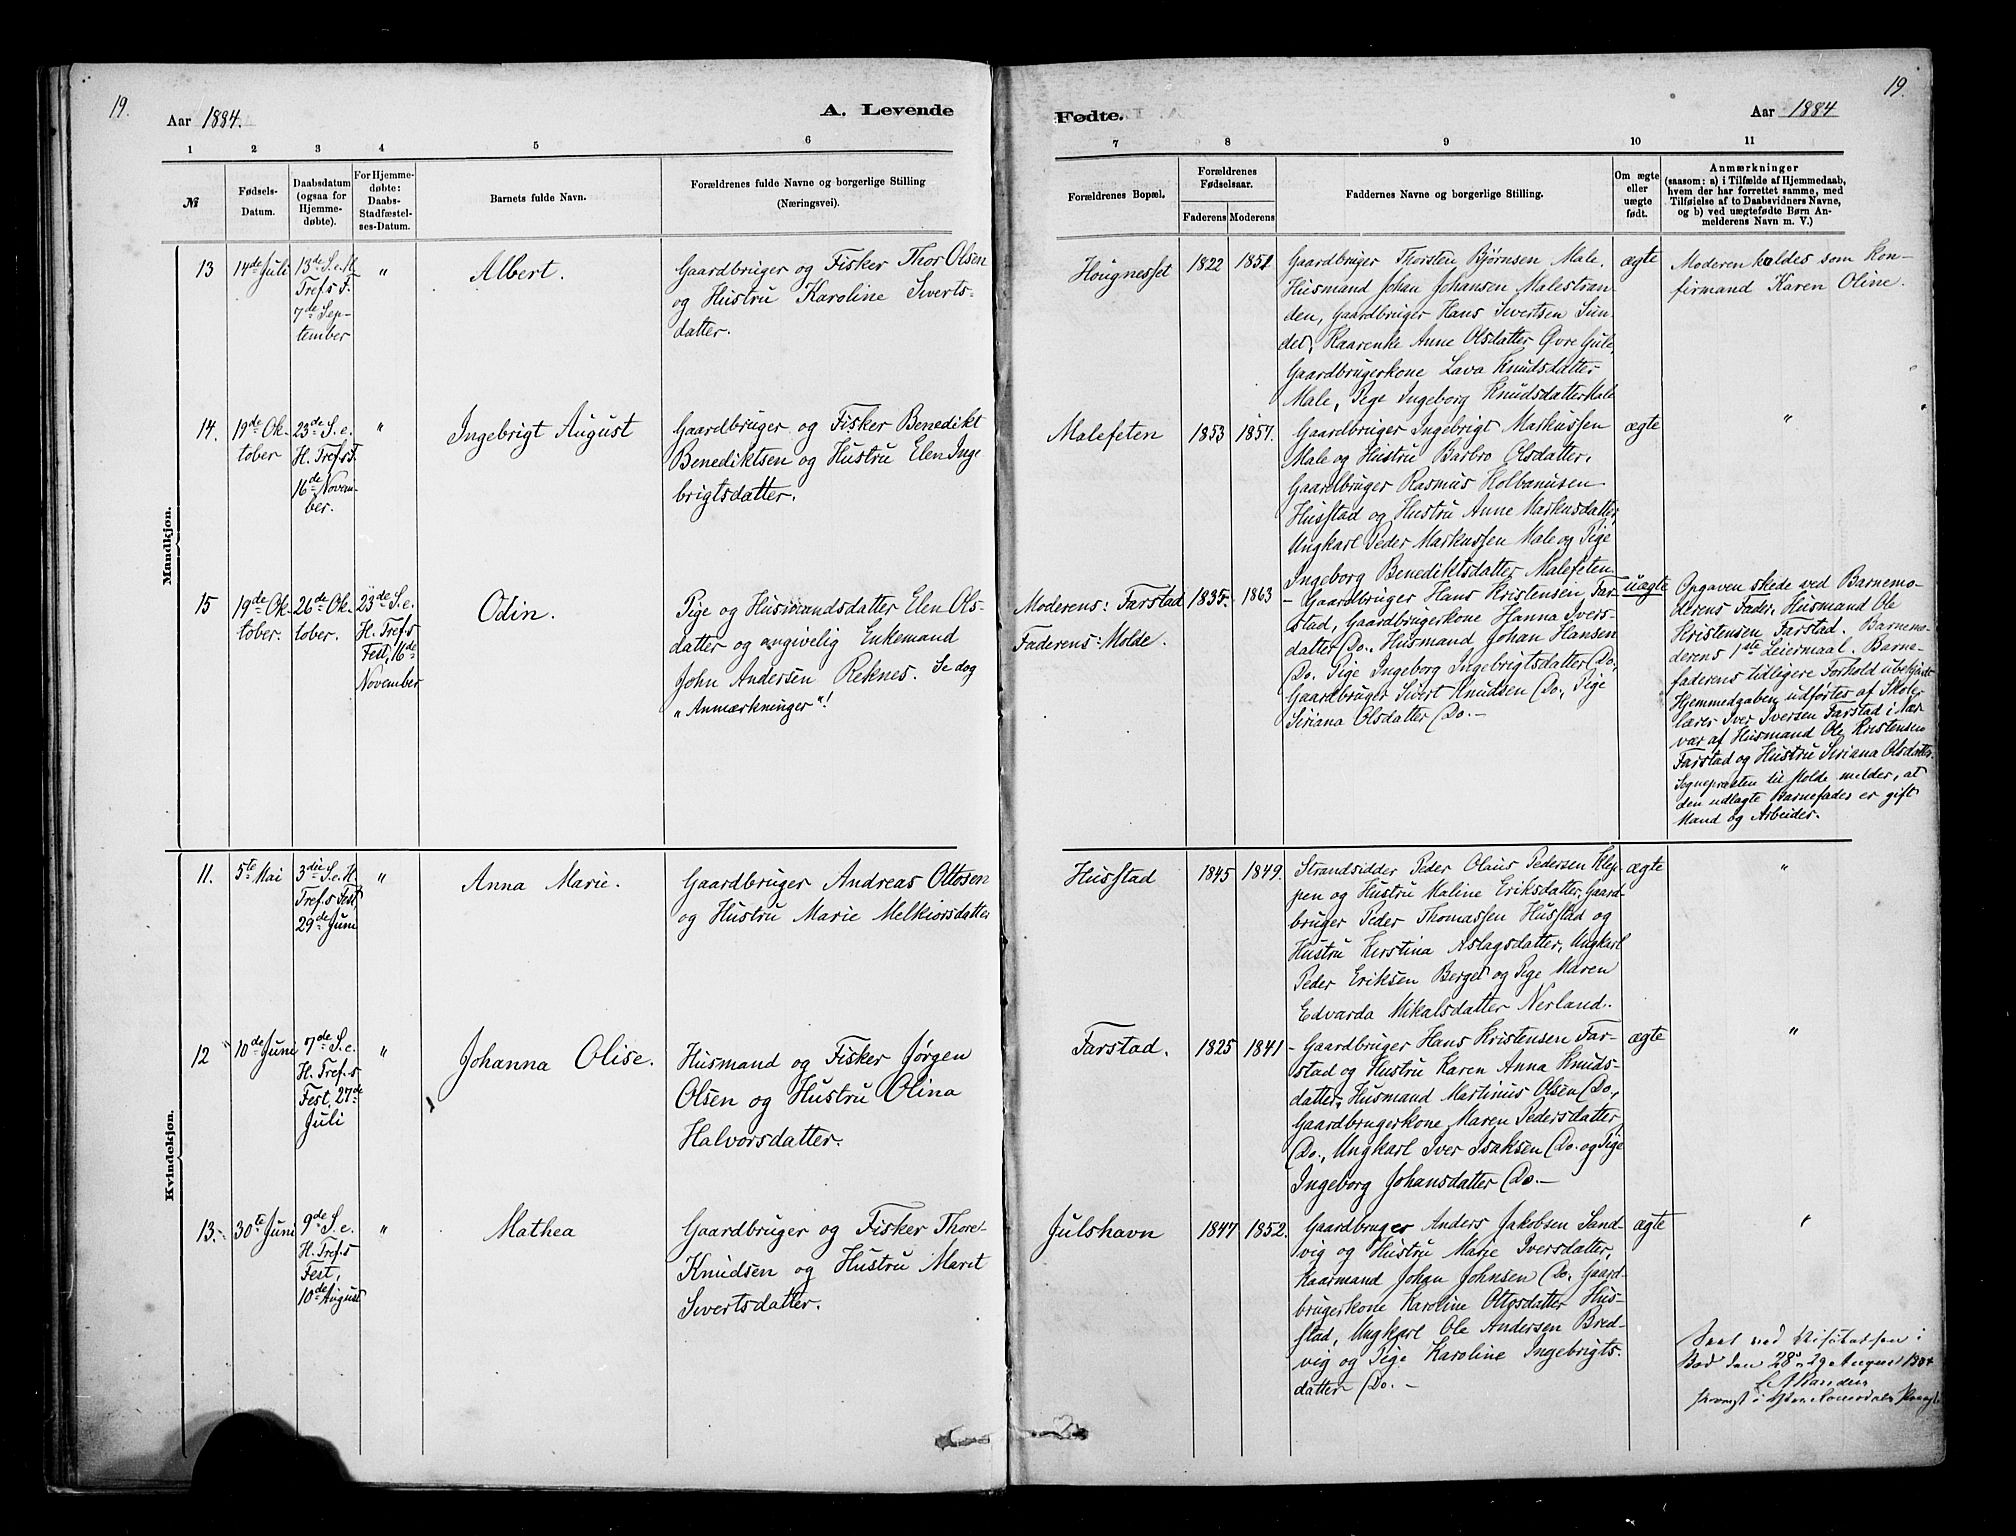 19.
Aar 1884.
A. Levende
1 2 3 4 5 6
№
Fødsels-
Datum.
Daabsdatum
(ogsaa for
Hjemme-
døbte).
For Hjemme-
døbte:
Daabs-
Stadfæstel-
ses-Datum.
Barnets fulde Navn.
Forældrenes fulde Navne og borgerlige Stilling
(Næringsvei).
Mandkjøn.
13
14de Juli
13de S. e. H.
Tref.s F.
7de Sep-
tember
"
Albert.
Gaardbruger og Fisker Thor Olsen
og Hustru Karoline Siverts-
datter.
14.
19de Ok-
tober
23de S. e.
H. Tref.s F.
16de Novem-
ber.
"
Ingebrigt August
Gaardbruger og Fisker Benedikt
Benediktsen og Hustru Elen Inge
brigtsdatter.
15
19de Ok-
tober.
26de Ok-
tober.
23de S. e.
H. Tref.s
Fest, 16de
November
Odin.
Pige og Husmandsdatter Elen Ols-
datter og angivelig Enkemand
John Andersen Reknes. Se dog
"Anmærkninger"!
Kvindekjøn.
11.
5te Mai
3die S. e. H.
Tref.s Fest
29de Juni
"
Anna Marie.
Gaardbruger Andreas Ottosen
og Hustru Marie Melkiorsdatter
12
10de Juni
7de S. e.
H. Tref.s
Fest, 27de
Juli
"
Johanna Olise.
Husmand og Fisker Jørgen
Olsen og Hustru Olina
Halvorsdatter.
13.
30te Juni
9de S. e.
H. Tref.s
Fest,
10de August
"
Mathea
Gaardbruger og Fisker Thore
Knudsen og Hustru Marit
Sivertsdatter.
19.
Fødte.
Aar 1884
7 8 9 10 11
Forældrenes Bopæl.
Forældrenes
Fødselsaar.
Faderens Moderens
Faddernes Navne og borgerlige Stilling.
Om ægte
eller
uægte
født.
Anmærkninger
(saasom: a) i Tilfælde af Hjemmedaab,
hvem der har forrettet samme, med
Tilføielse af to Daabsvidners Navne,
og b) ved uægtefødte Børn An-
melderens Navn m. V.)
Hougnesset
1822 1851
Gaardbruger Thorsten Bjørnsen Male,
Husmand Johan Johansen Malestran-
den, Gaardbruger Hans Sivertsen Sun-
det, Kaarenke Anne Olsdatter Øvre Gule,
Gaardbrugerkone Lava Knudsdatter
Male, Pige Ingeborg Knudsdatter Male
ægte
Moderen kaldes som Kon-
firmand Karen Oline.
Malefeten
1853 1857.
Gaardbruger Ingebrigt Markussen
Male og Hustru Barbro Olsdatter,
Gaardbruger Rasmus Kolbanusen
Husstad og Hustru Anne Markusdatter,
Ungkarl Peder Markussen Male og Pige
Ingeborg Benediktsdatter Malefeten
ægte
"
Moderens: Farstad
Faderens: Molde.
1835. 1863
- Gaardbruger Hans Kristensen Far-
stad, Gaardbrugerkone Hanna Ivers-
datter Do., Husmand Johan Hansen
Do. Pige Ingeborg Ingebrigtsdatter Do,
Gaardbruger Sivert Knudsen Do, Pige
Siriana Olsdatter Do. -
uægte
Opgaven skede ved Barnemo-
derens Fader, Husmand Ole
Kristensen Farstad. Barnemo-
derens 1ste Leiermaal. Barne-
faderens tidligere Forhold ubekjendt
Hjemmedaaben udførtes af Skole-
lærer Iver Iversen Farstad i Nær
vær af Husmand Ole Kristensen
Farstad og Hustru Siriana Olsdatter.
Sognepræsten til Molde melder, at
den udlagte Barnefader er gift
Mand og Arbeider.
Husstad
1845 1849.
Strandsidder Peder Olaus Pedersen Klep-
pen og Hustru Maline Eriksdatter, Gaard-
bruger Peder Thomassen Husstad og
Hustru Kirstina Aslagsdatter, Ungkarl
Peder Eriksen Berget og Pige Maren
Edvarda Mikalsdatter Nerland.
ægte
"
Farstad.
1825 1841
- Gaardbruger Hans Kristensen Far-
stad og Hustru Karen Anna Knuds-
datter, Husmand Martinus Olsen Do,
Gaardbrugerkone Maren Pedersdatter
Do., Ungkarl Iver Isaksen Do. og Pige
Ingeborg Johansdatter Do. -
ægte
"
Julshavn
1847 1852.
Gaardbruger Anders Jakobsen Sand-
vig og Hustru Marie Iversdatter,
Kaarmand Johan Johnsen Do, Gaard-
brugerkone Karoline Ottosdatter Hus-
stad, Ungkarl Ole Andersen Bred-
vig og Pige Karoline Ingebrigts-
datter Do. -
ægte
"
Seet ved Visitatsen i
Bod den 28 - 29 August 1904